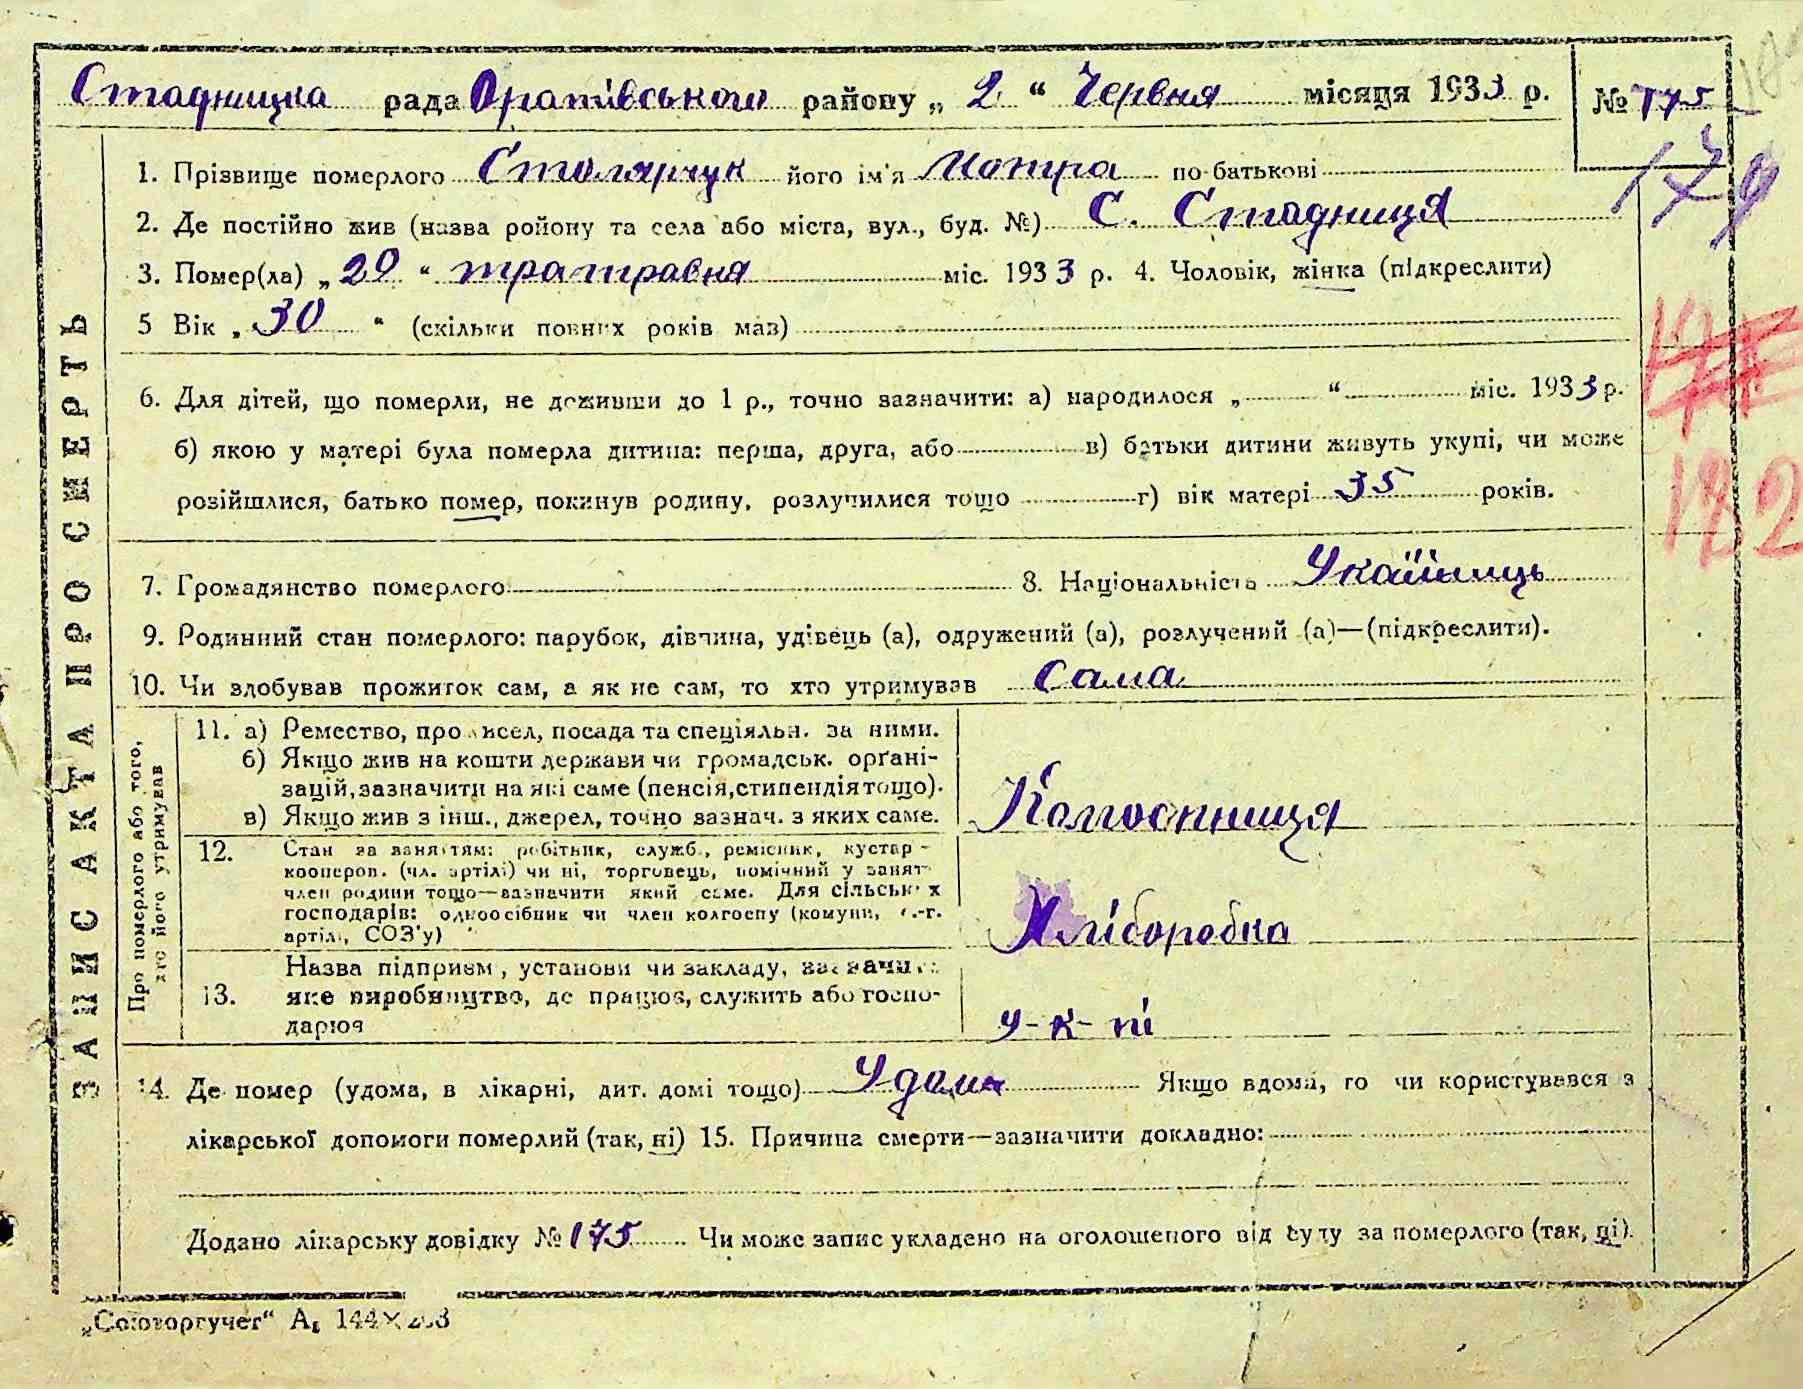 Стадницка рада Оратівського району „ 2 “ Червня місяця 1933 р. № 175
179
1. Прізвище померлого Столярчук його ім'я Мотря по-батькові
2. Де постійно жив (назва ройону та села або міста, вул., буд. №) С. Стадниця
3. Помер(ла) „ 29 “ тратравня міс. 1933 р. 4. Чоловік, жінка (підкреслити)
5 Вік „ 30 “ (скільки повних років маз)
6. Для дітей, що померли, не доживши до 1 р., точно зазначити: а) народилося „ “ міс. 1933 р.
б) якою у матері була померла дитина: перша, друга, або в) батьки дитини живуть укупі, чи може
122
розійшлися, батько помер, покинув родину, розлучилися тощо г) вік матері 35 років.
7. Громадянство померлого 8. Національність Укаїінець
9. Родинний стан померлого: парубок, дівчина, удівець (а), одружений (а), розлучений (а)—(підкреслити).
10. Чи здобував прожиток сам, а як не сам, то хто утримував Сама
ЗАПИС АКТА ПРО СМЕРТЬ
Про померлого або того, хто його утримував
11. а) Ремество, промисел, посада та спеціяльн. за ними.
б) Якщо жив на кошти держави чи громадськ. орґані-
зацій, зазначити на які саме (пенсія, стипендія тощо).
в) Якщо жив з інш., джерел, точно зазнач. з яких саме.
Колгоспниця
12. Стан за заняттям: робітник, служб., ремісник, кустар-
кооперов. (чл. артілі) чи ні, торговець, помічний у занят
член родини тощо—зазначити який саме. Для сільських
господарів: одноосібник чи член колгоспу (комуни, с.-г.
артілі, СОЗ'у)
Хліборобка
13. Назва підприєм, установи чи закладу, зазначити
яке виробництво, де працює, служить або госпо-
дарює
у-к-пі
14. Де помер (удома, в лікарні, дит. домі тощо) Удома Якщо вдома, то чи користувався з
лікарської допомоги померлий (так, ні) 15. Причина смерти—зазначити докладно:
Додано лікарську довідку № 175 Чи може запис укладено на оголошеного від суду за померлого (так, ні).
„Союзоргучет“ А₅ 144×203